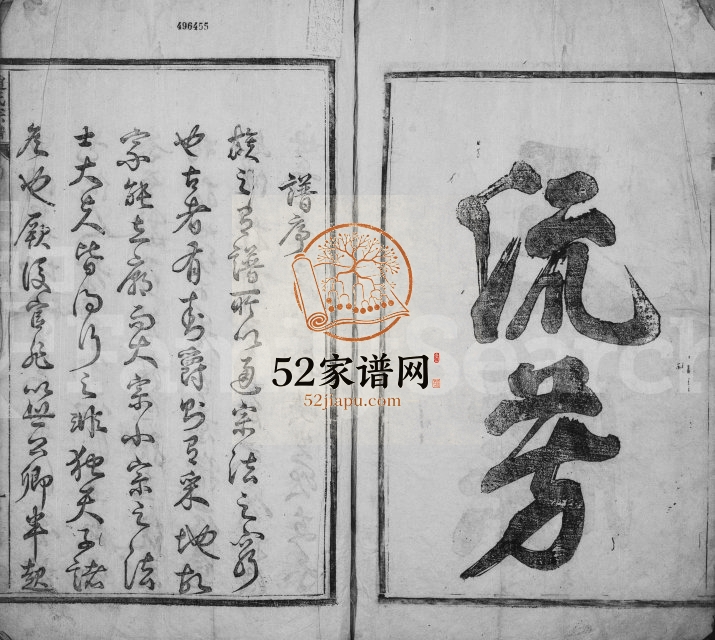 496455
流芳
譜序
族之有譜所以通宗法之窮
也古者有封爵則有采地故
宗能立廟而大宗小宗之法
士大夫皆得行之非獨天子諸
侯也厥後官非以世公卿半起
52家谱网
52jiapu.com
FamilySearch